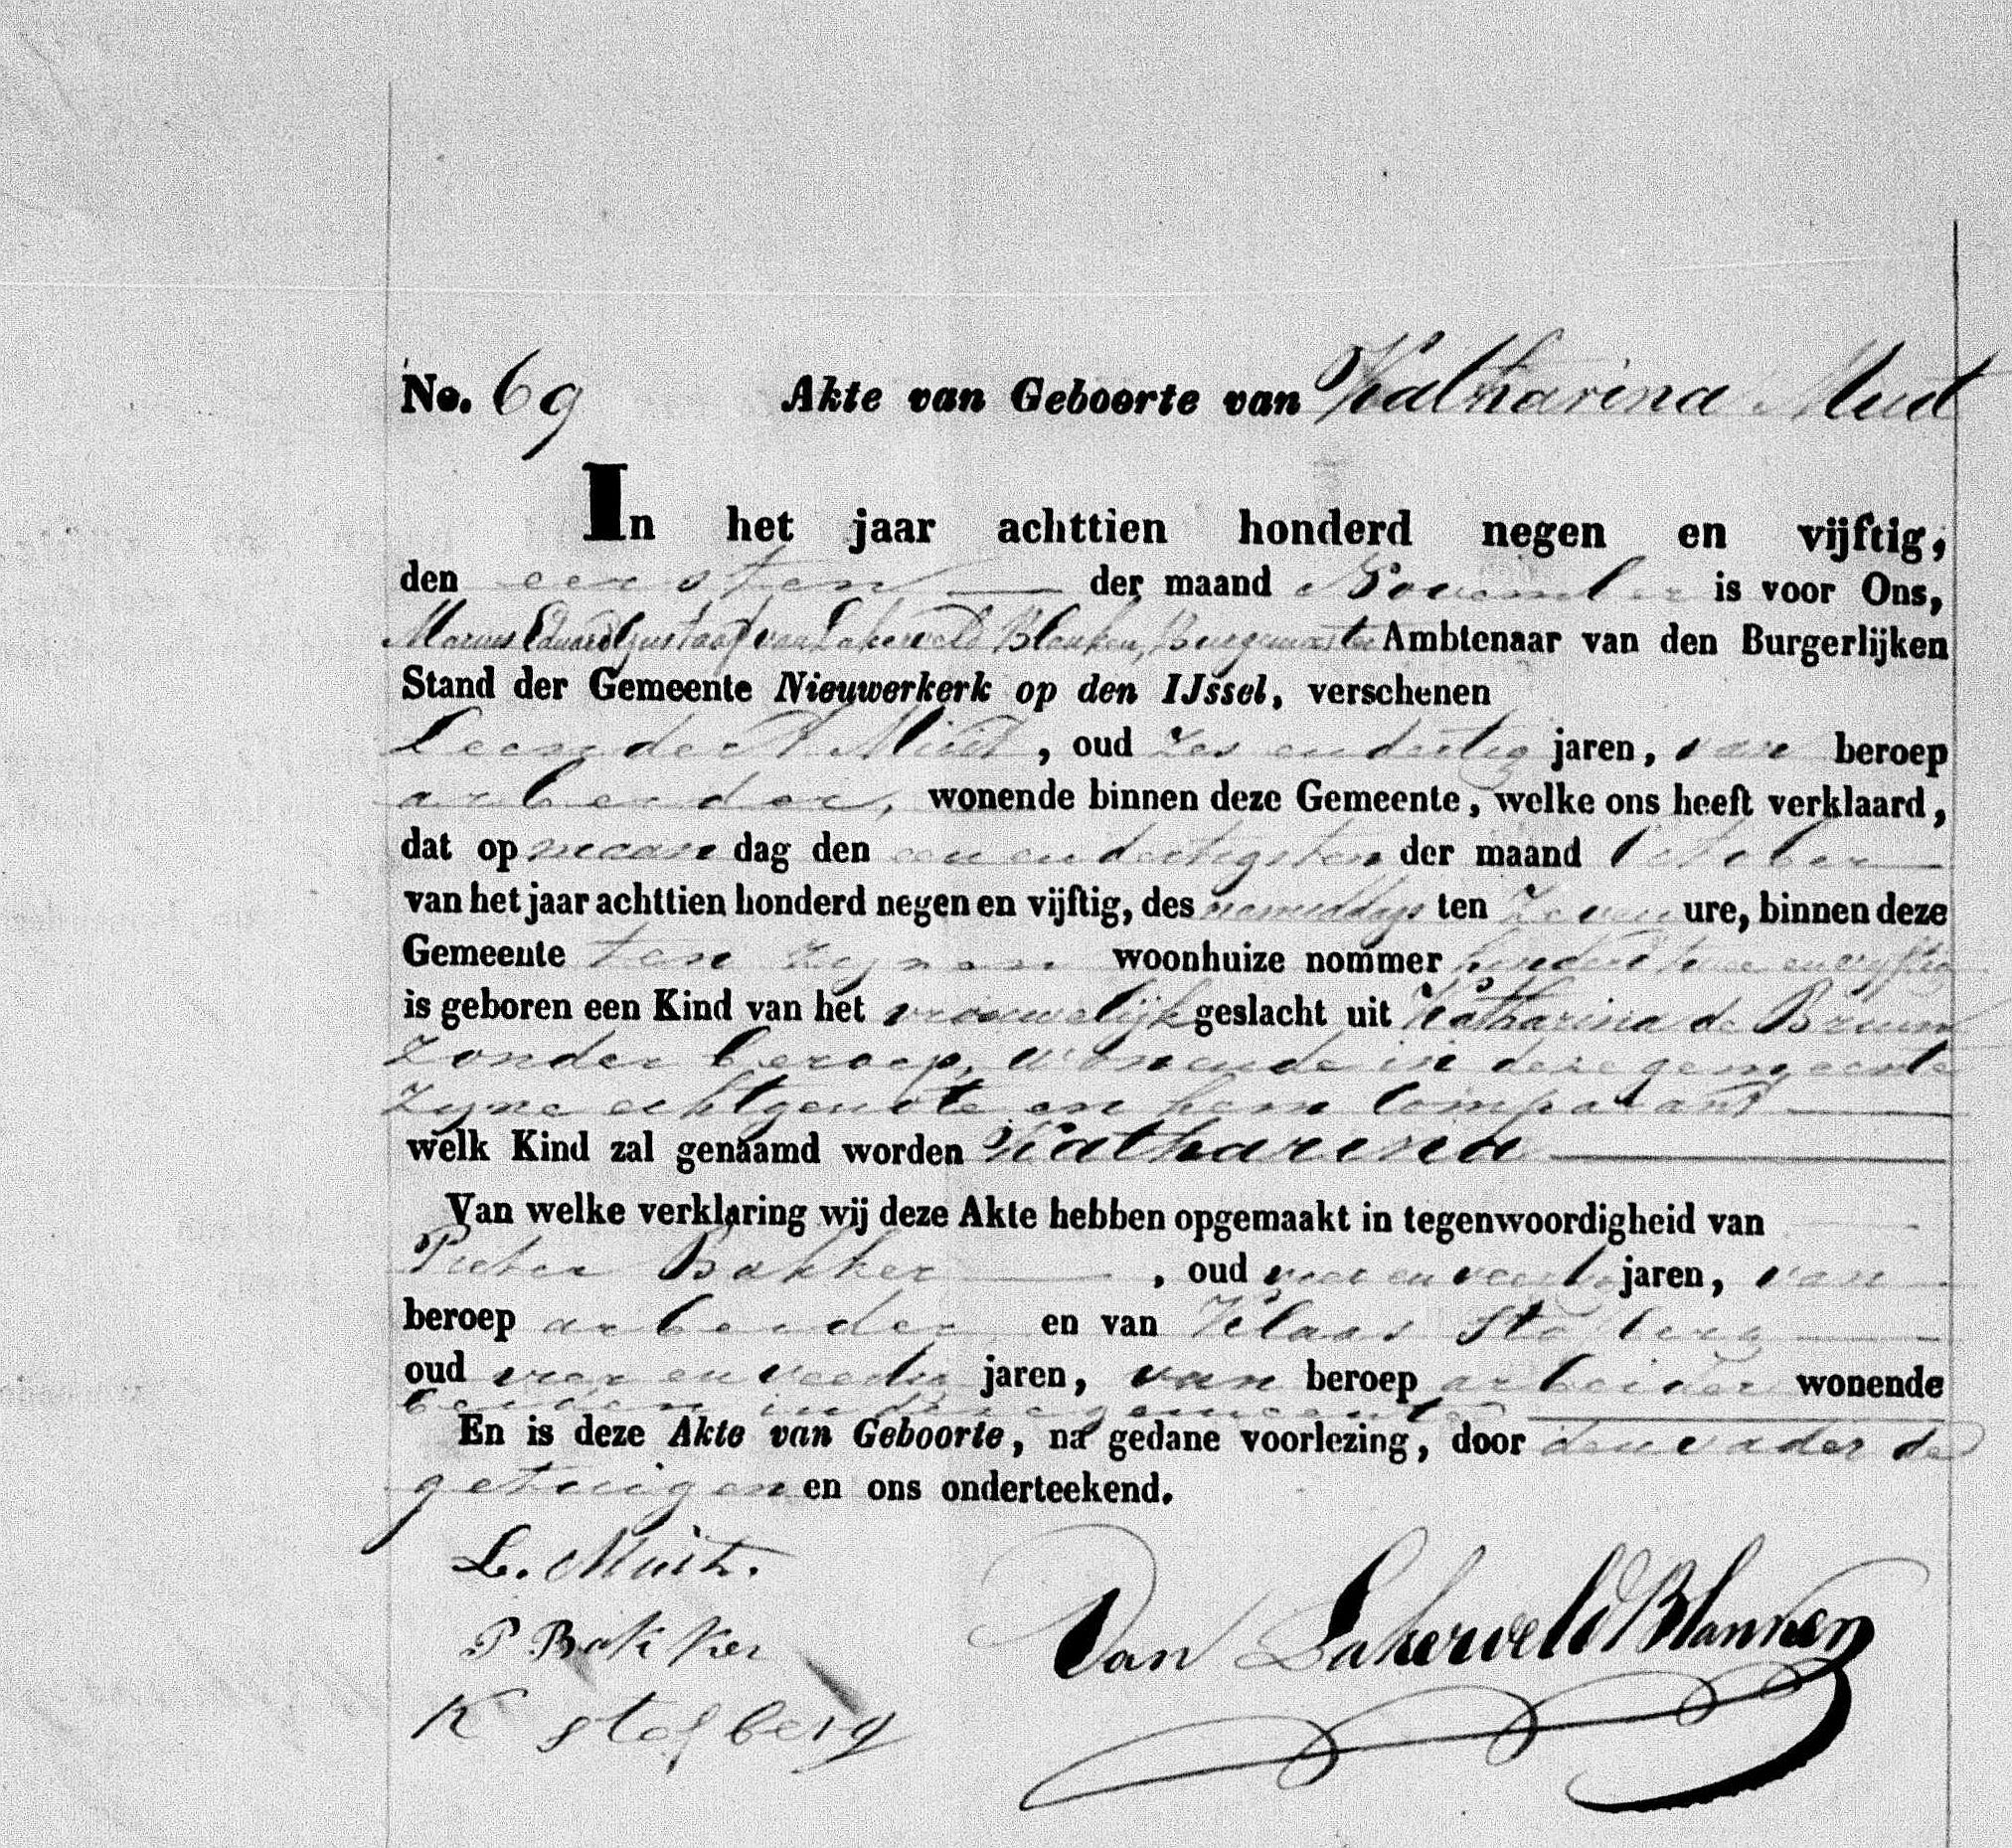 No. 69 Akte van Geboorte van Katharina Mud
In het jaar achttien honderd negen en vijftig,
den eersten der maand November is voor Ons,
Marius Eduard Gustaaf van Lakerveld Blanken, Burgemeester Ambtenaar van den Burgerlijken
Stand der Gemeente Nieuwerkerk op den IJssel, verschenen
Leendert Mud, oud zes en dertig jaren, van beroep
arbeider, wonende binnen deze Gemeente, welke ons heeft verklaard,
dat op maan dag den een en dertigsten der maand October
van het jaar achttien honderd negen en vijftig, des namiddags ten zeven ure, binnen deze
Gemeente ten zijnen woonhuize nommer honderd twee en vyftig
is geboren een Kind van het vrouwelijk geslacht uit Katharina de Bruin
zonder beroep, wonende in deze gemeente
zyne echtgenote en hem comparant
welk Kind zal genaamd worden Katharina
Van welke verklaring wij deze Akte hebben opgemaakt in tegenwoordigheid van
Pieter Bakker, oud vier en veertig jaren, van
beroep arbeider en van Klaas Stofberg
oud vier en veertig jaren, van beroep arbeider wonende
beiden in deze gemeente
En is deze Akte van Geboorte, na gedane voorlezing, door den vader de
getuigen en ons onderteekend.
L. Muit.
P Bakker
K Stofberg
Van Lakerveld Blanken